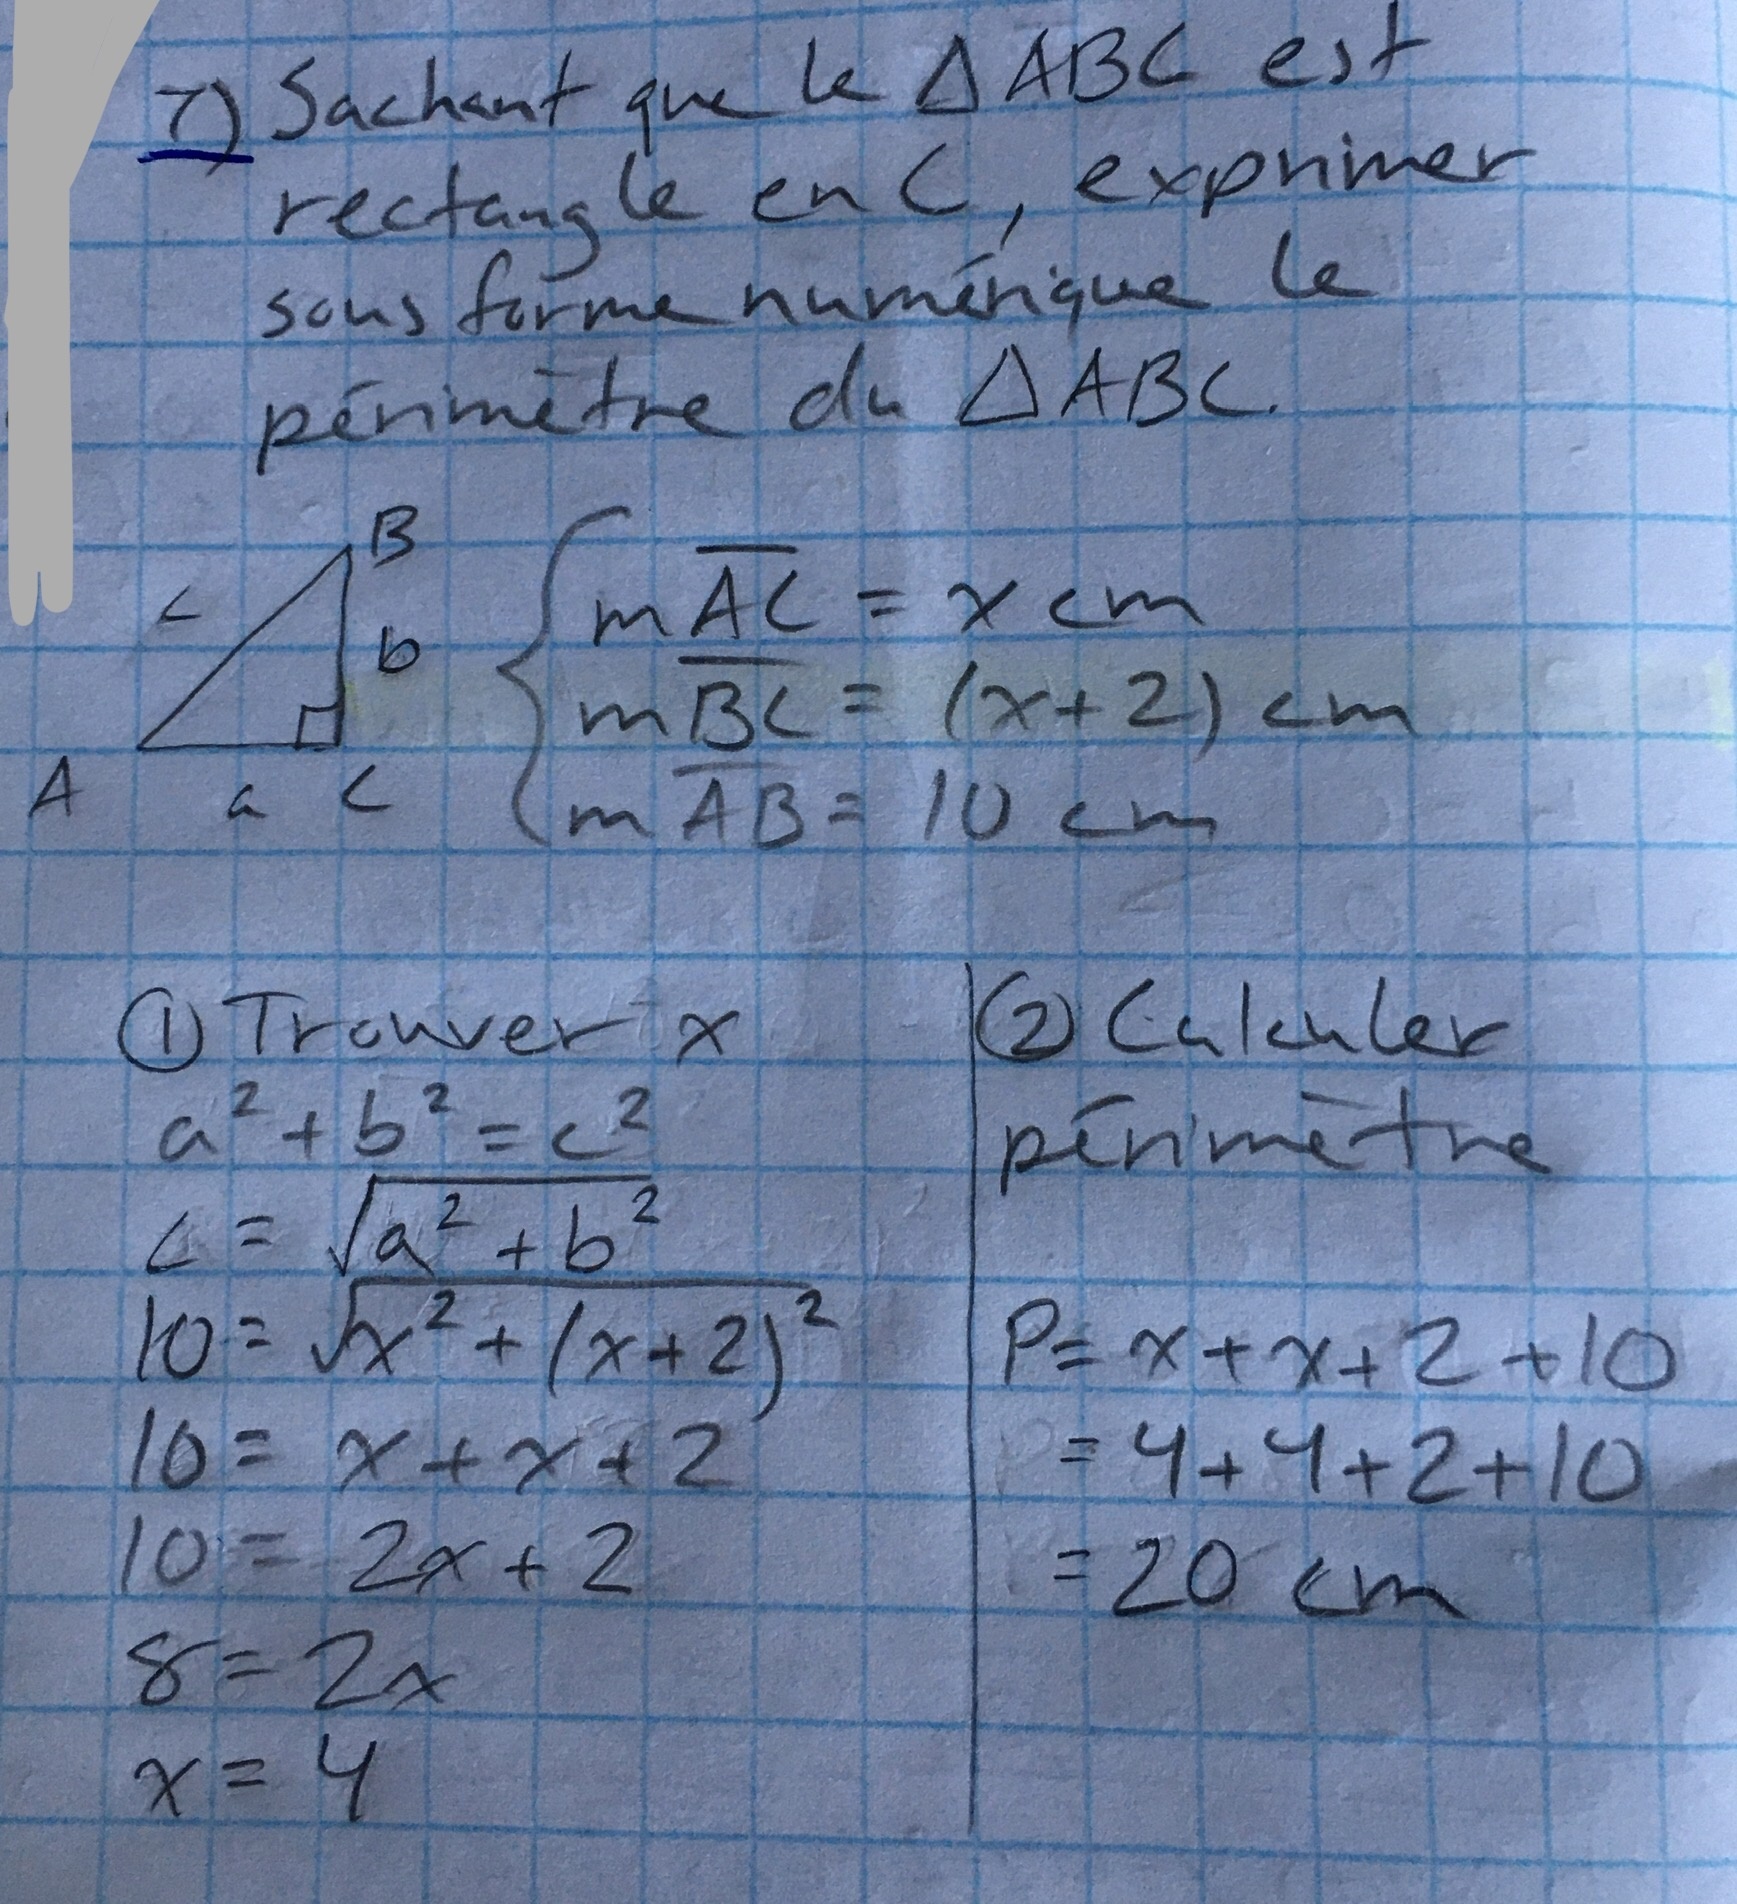 7) Sachant que le △ABC est
rectangle en C, exprimer
sous forme numérique le
périmètre du △ABC.
B
c
b
A
a
C
m AC̅ = x cm
m BC̅ = (x+2) cm
m AB̅ = 10 cm
① Trouver x
a² + b² = c²
c = √(a² + b²)
10 = √(x² + (x+2)²)
10 = x + x + 2
10 = 2x + 2
8 = 2x
x = 4
② Calculer
périmètre
P = x + x + 2 + 10
= 4 + 4 + 2 + 10
= 20 cm